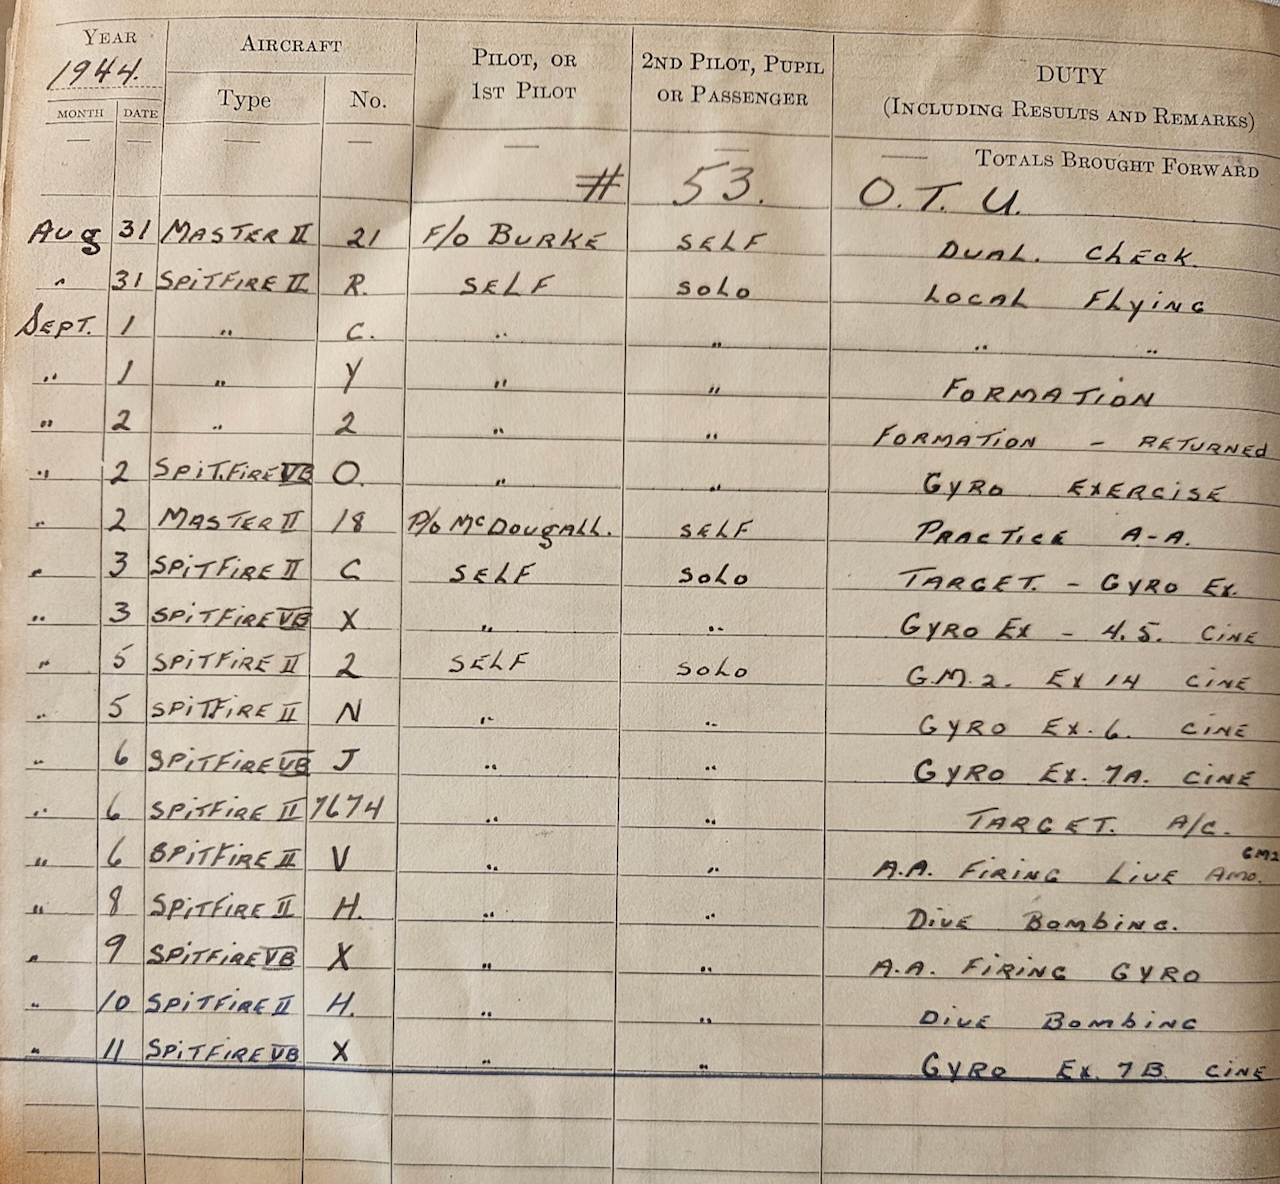 YEAR AIRCRAFT PILOT, OR 2ND PILOT, PUPIL DUTY
1944. Type No. 1ST PILOT OR PASSENGER (INCLUDING RESULTS AND REMARKS)
MONTH DATE
— — — — — — — TOTALS BROUGHT FORWARD
# 53. O.T.U.
Aug 31 MASTER II 21 F/O BURKE SELF DUAL. CHECK
" 31 SPITFIRE II R. SELF SOLO LOCAL FLYING
SEPT. 1 " C. " " " "
" 1 " Y " " FORMATION
" 2 " 2 " " FORMATION - RETURNED
" 2 SPITFIRE VB O. " " GYRO EXERCISE
" 2 MASTER II 18 P/O McDOUGALL. SELF PRACTICE A-A.
" 3 SPITFIRE II C SELF SOLO TARGET. - GYRO EX.
" 3 SPITFIRE VB X " " GYRO EX - 4.5. CINE
" 5 SPITFIRE II 2 SELF SOLO G.M.2. EX 14 CINE
" 5 SPITFIRE II N " " GYRO EX. 6. CINE
" 6 SPITFIRE VB J " " GYRO EX. 7A. CINE
" 6 SPITFIRE II 7674 " " TARGET. A/C.
" 6 SPITFIRE II V " " A.A. FIRING LIVE AMO. GM2
" 8 SPITFIRE II H. " " DIVE BOMBING.
" 9 SPITFIRE VB X " " A.A. FIRING GYRO
" 10 SPITFIRE II H. " " DIVE BOMBING
" 11 SPITFIRE VB X " " GYRO EX. 7B CINE